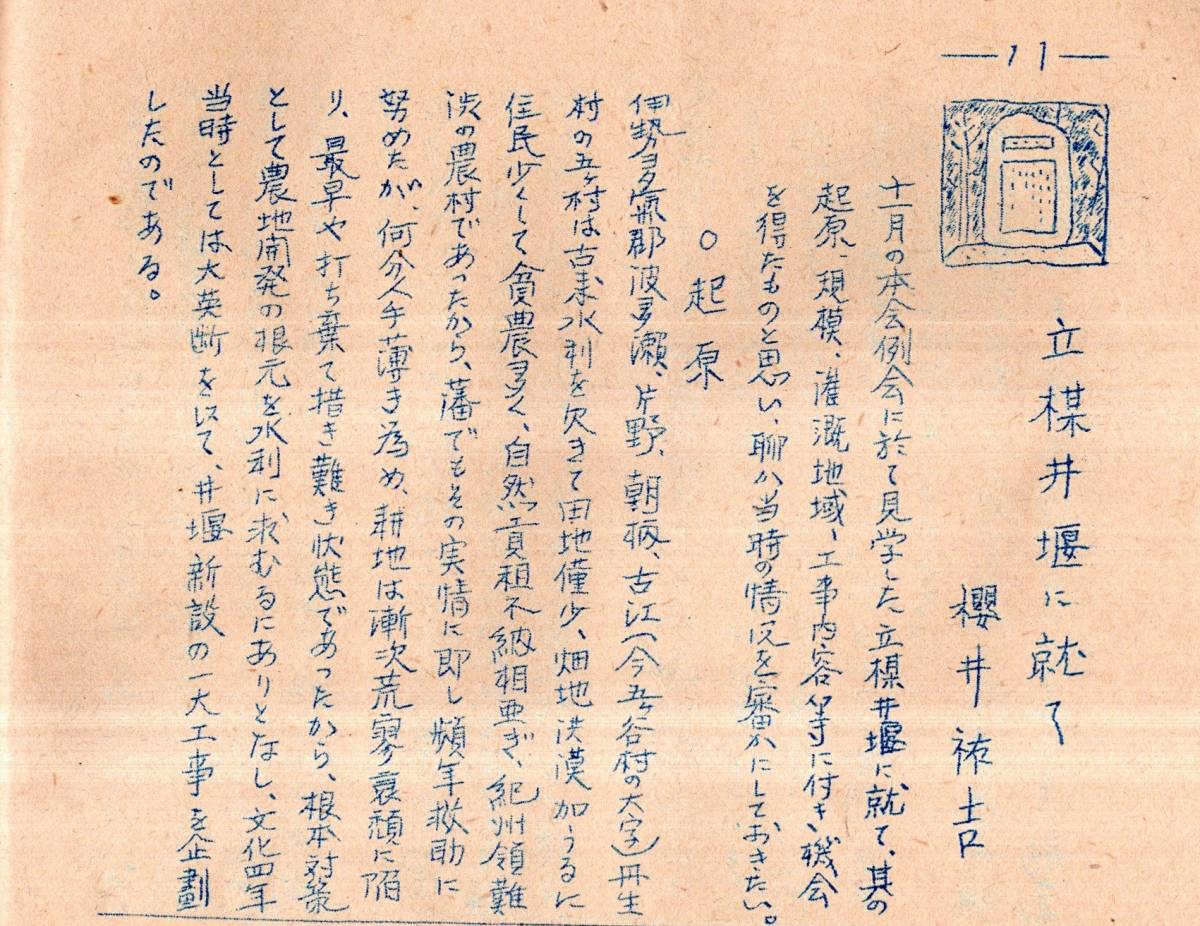 —11—
立楳井堰に就て
櫻井祐吉
十一月の本会例会に於て見学した立楳井堰に就て、其の
起原、規模、灌漑地域、工事内容等に付き、機会
を得たものと思い、聊か当時の情况を審かにしておきたい。
○起原
伊勢多気郡波多瀬、片野、朝柄、古江(今五ケ谷村の大字)丹生
村の五ケ村は古来水利を欠きて田地僅少、畑地洪漠加うるに
住民少くして貧農多く、自然貢租不納相亜ぎ、紀州領難
渋の農村であったから、藩でもその実情に即し頻年救助に
努めたが、何分人手薄き為め、耕地は漸次荒寥衰頽に陥
り、最早や打ち棄て措き難き状態であったから、根本対策
として農地開発の根元を水利に求むるにありとなし、文化四年
当時としては大英断を以て、井堰新設の一大工事を企劃
したのである。